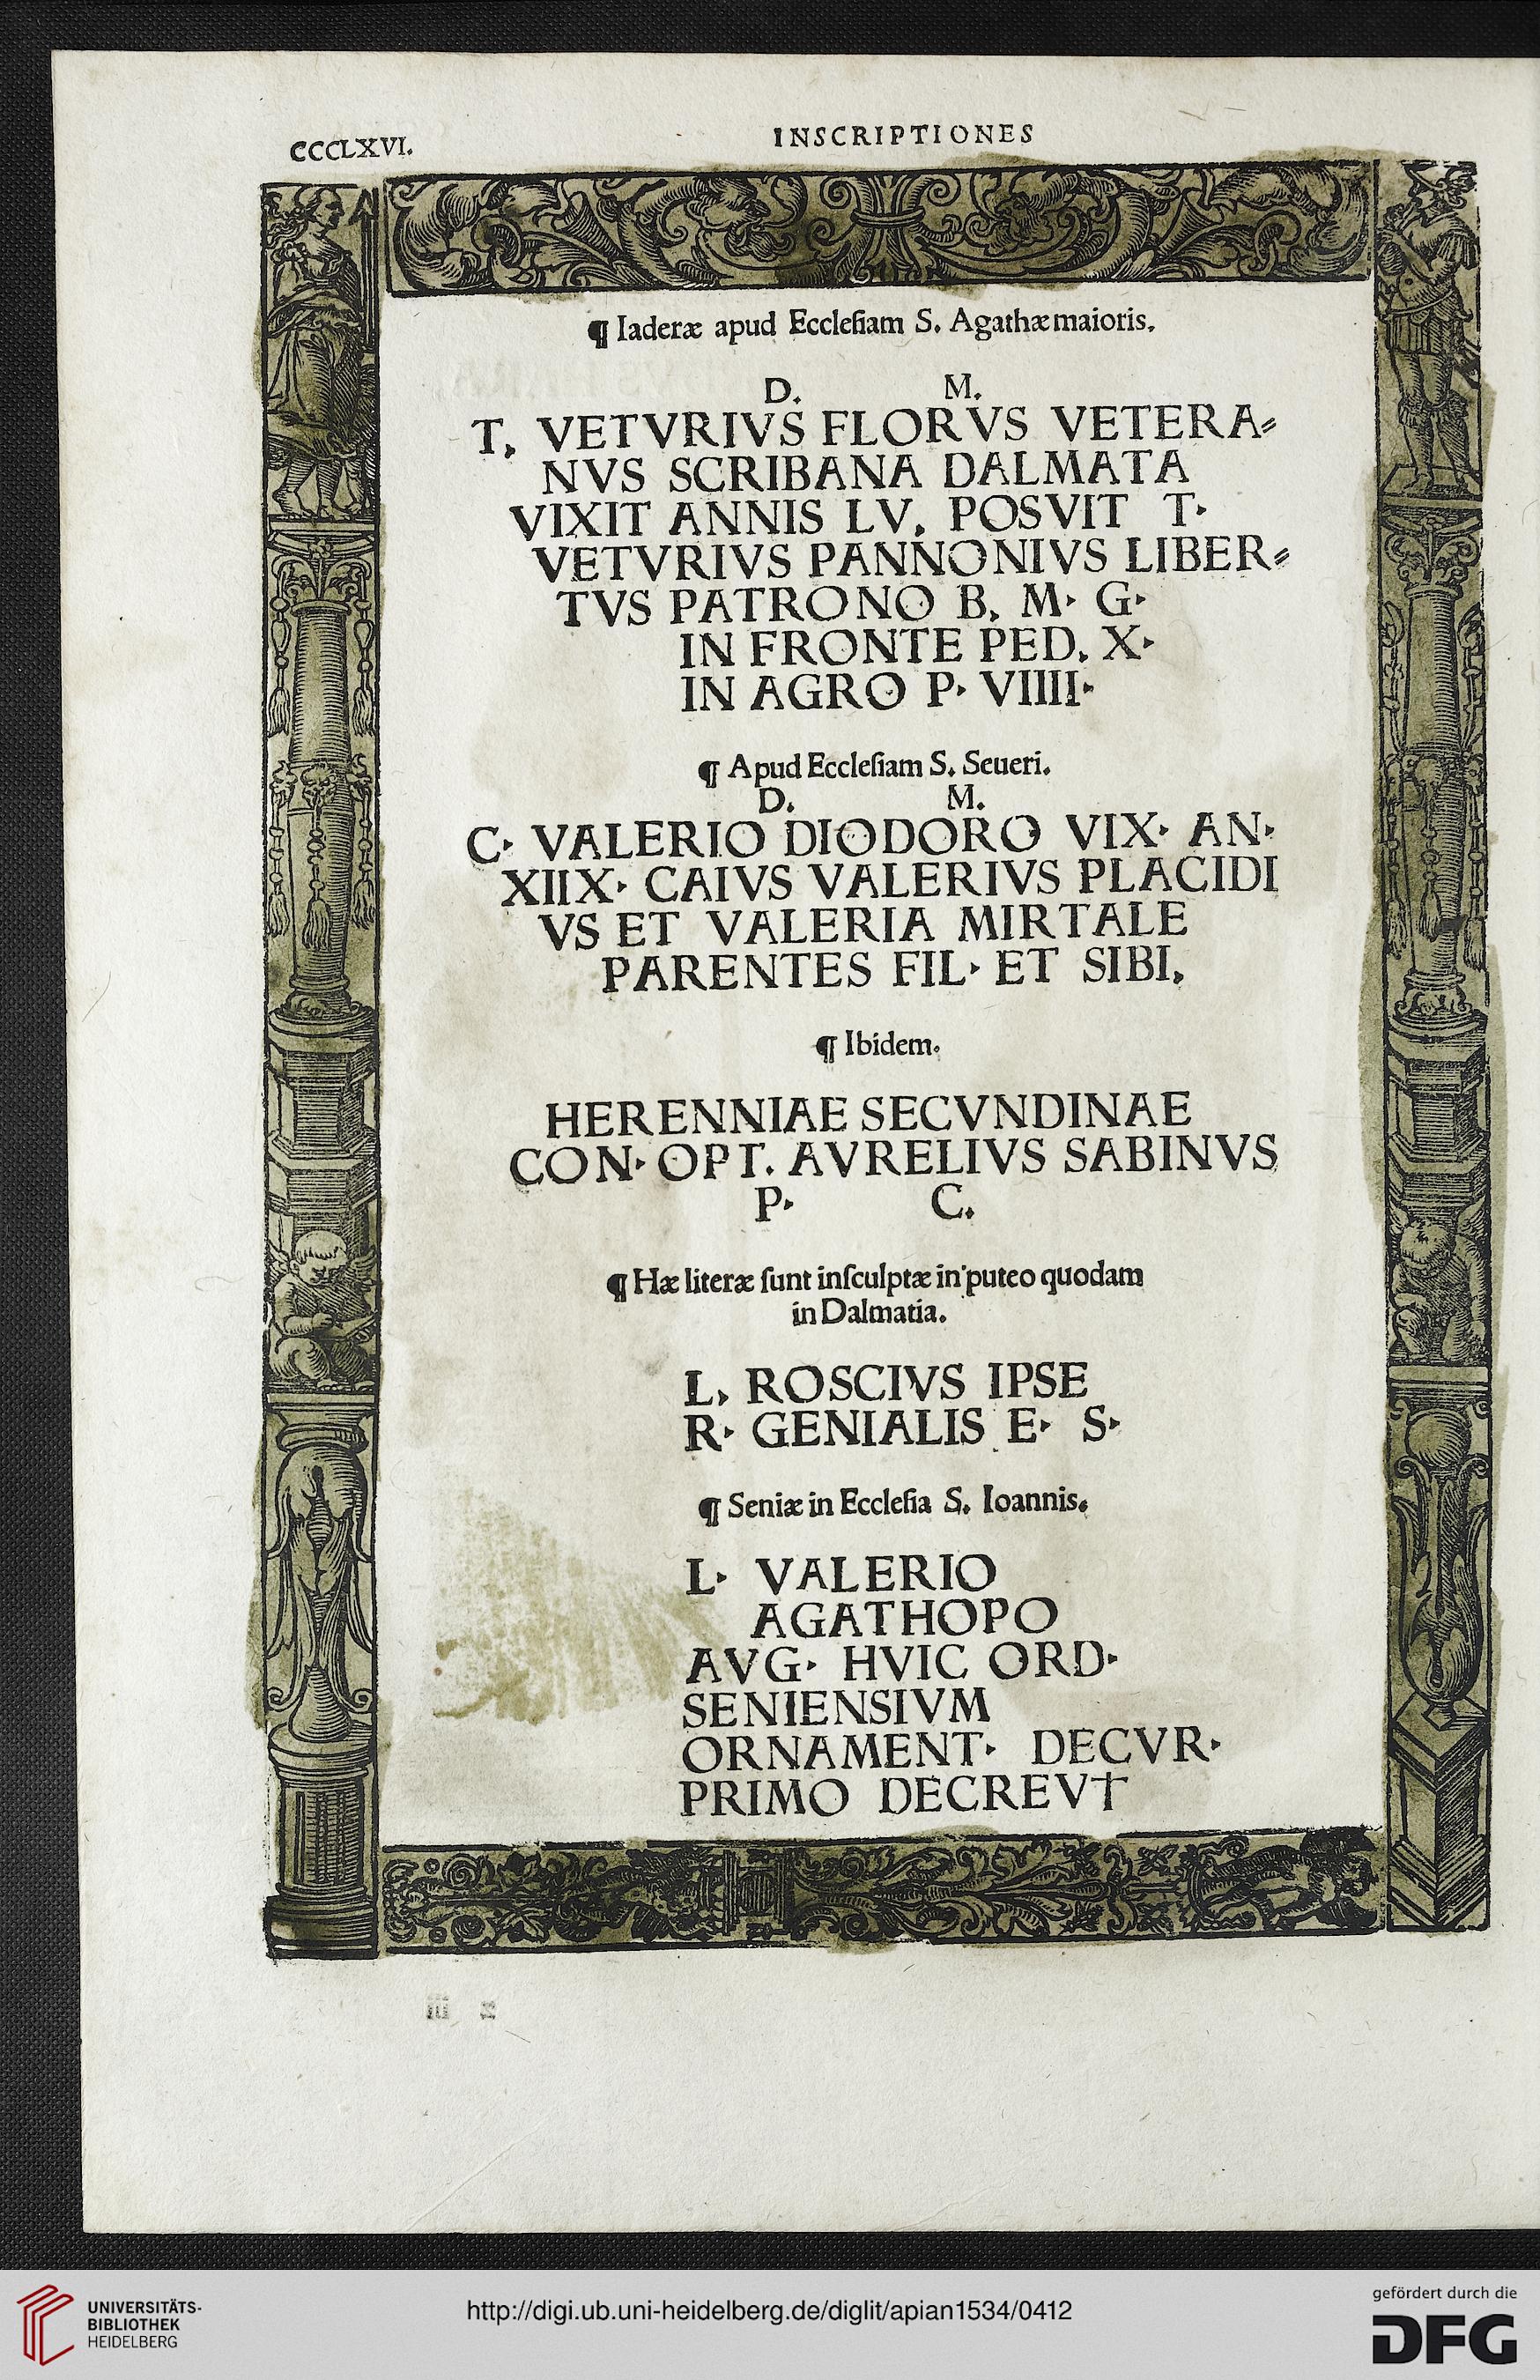 CCCLXVI.
INSCRIPTIONES
¶ Iaderæ apud Eccleſiam S. Agathæ maioris.
D. M.
T. VETVRIVS FLORVS VETERA⸗
NVS SCRIBANA DALMATA
VIXIT ANNIS LV. POSVIT T·
VETVRIVS PANNONIVS LIBER⸗
TVS PATRONO B. M· G·
IN FRONTE PED. X·
IN AGRO P· VIIII·
¶ Apud Eccleſiam S. Seueri.
D. M.
C· VALERIO DIODORO VIX· AN·
XIIX· CAIVS VALERIVS PLACIDI
VS ET VALERIA MIRTALE
PARENTES FIL· ET SIBI.
¶ Ibidem.
HERENNIAE SECVNDINAE
CON· OPT. AVRELIVS SABINVS
P· C.
¶ Hæ literæ ſunt inſculptæ in puteo quodam
in Dalmatia.
L. ROSCIVS IPSE
R· GENIALIS E· S·
¶ Seniæ in Eccleſia S. Ioannis.
L· VALERIO
AGATHOPO
AVG· HVIC ORD·
SENIENSIVM
ORNAMENT· DECVR·
PRIMO DECREV†
UNIVERSITÄTS-
BIBLIOTHEK
HEIDELBERG
http://digi.ub.uni-heidelberg.de/diglit/apian1534/0412
gefördert durch die
DFG